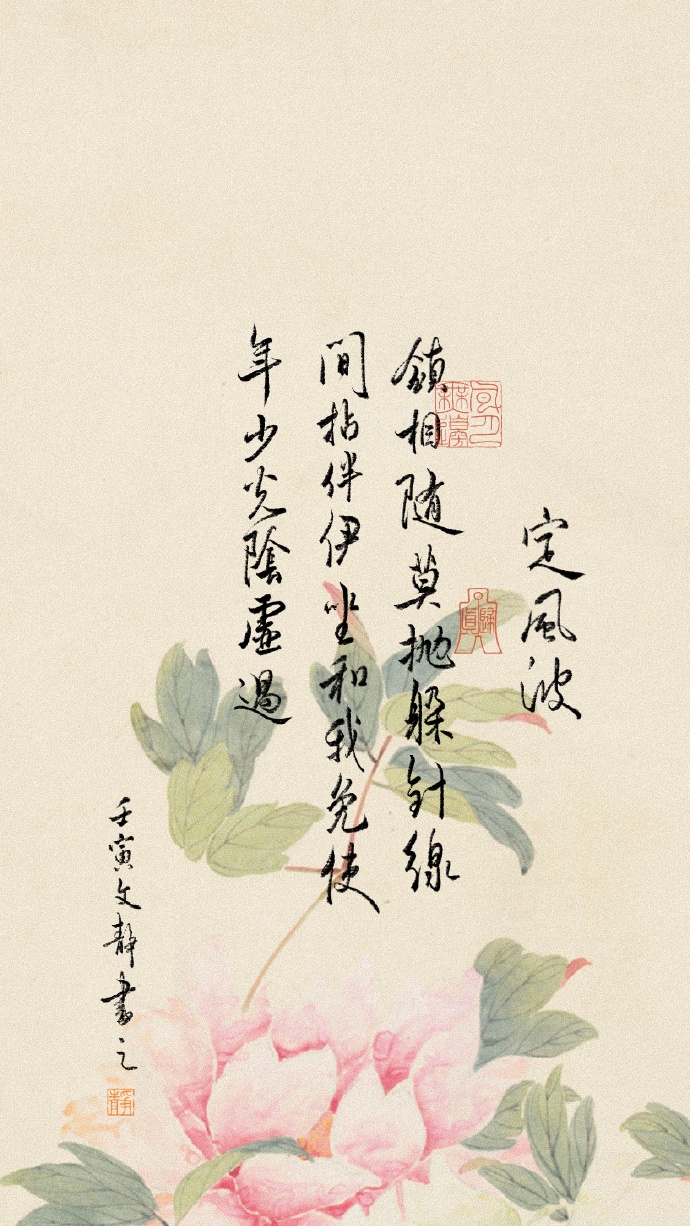 定風波
鎮相随莫抛躲針線
閒拈伴伊坐和我免使
年少光陰虛過
壬寅文靜書之
靜